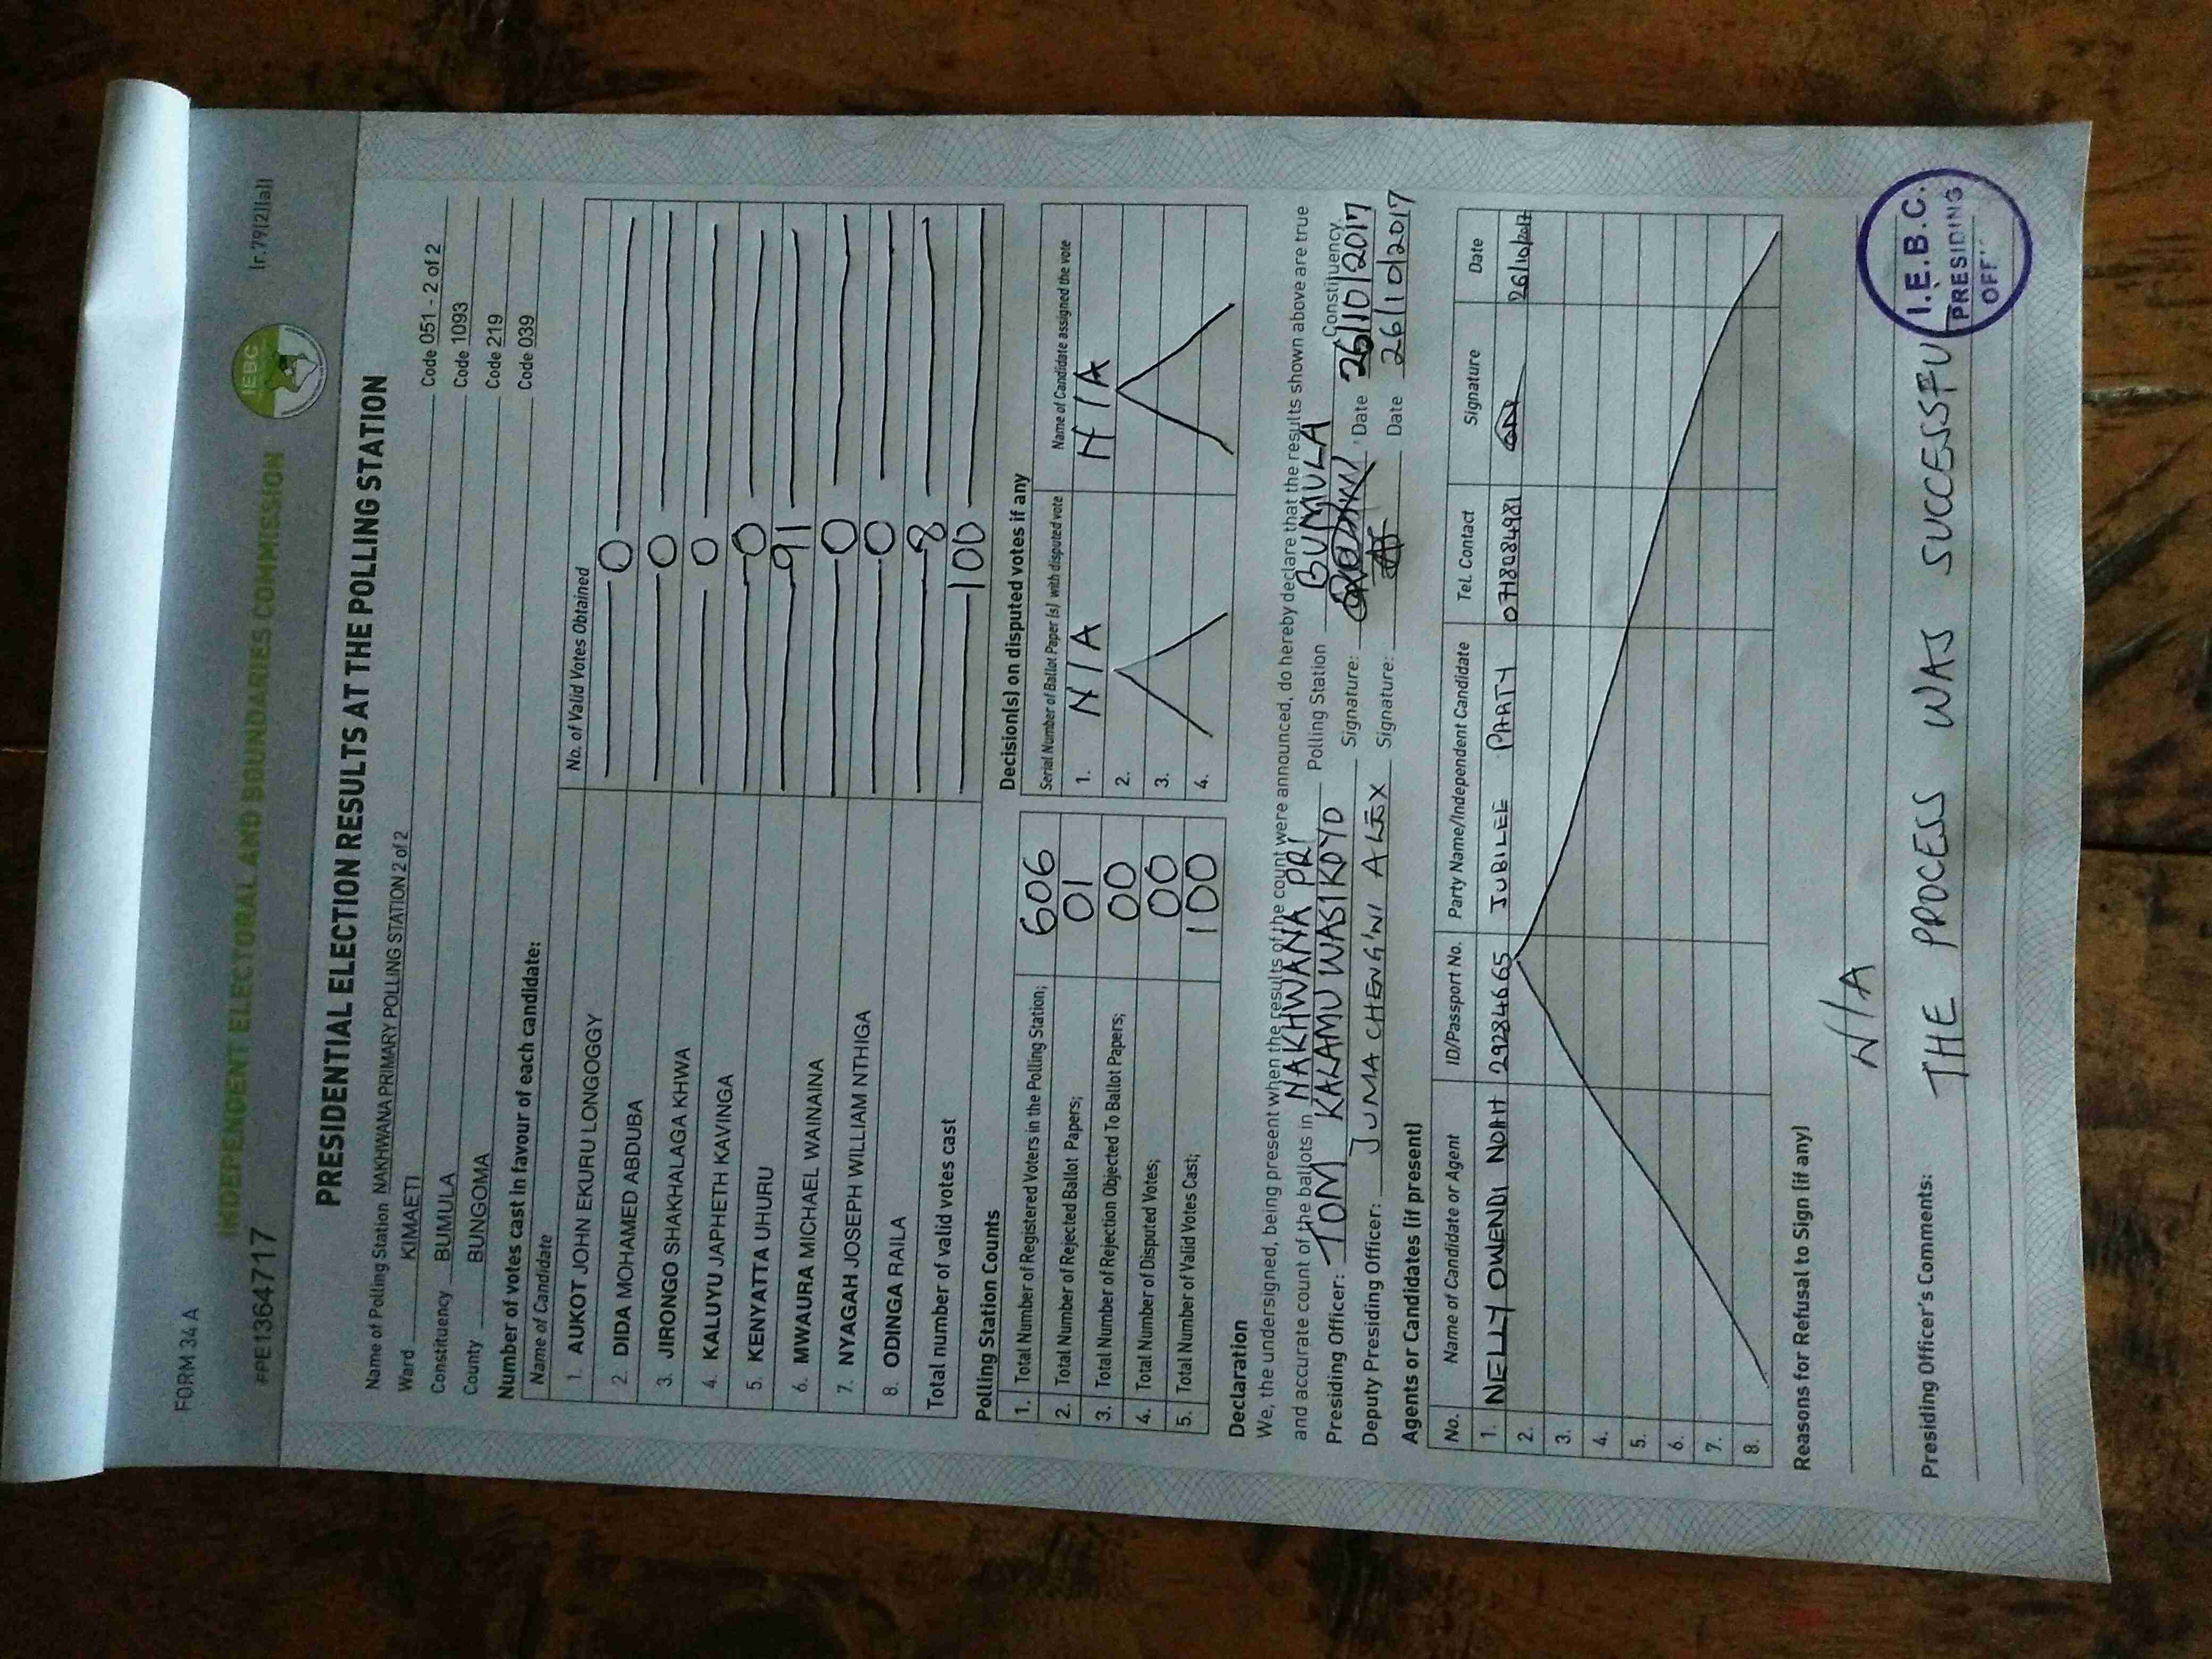 FORM 34 A
(r.79(2)(a))
PE1364717
INDEPENDENT ELECTORAL AND BOUNDARIES COMMISSION
IEBC
PRESIDENTIAL ELECTION RESULTS AT THE POLLING STATION
Name of Polling Station NAKHWANA PRIMARY POLLING STATION 2 of 2 Code 051 - 2 of 2
Ward KIMAETI Code 1093
Constituency BUMULA Code 219
County BUNGOMA Code 039
Number of votes cast in favour of each candidate:
Name of Candidate No. of Valid Votes Obtained
1. AUKOT JOHN EKURU LONGOGGY 0
2. DIDA MOHAMED ABDUBA 0
3. JIRONGO SHAKHALAGA KHWA 0
4. KALUYU JAPHETH KAVINGA 0
5. KENYATTA UHURU 91
6. MWAURA MICHAEL WAINAINA 0
7. NYAGAH JOSEPH WILLIAM NTHIGA 0
8. ODINGA RAILA 8
Total number of valid votes cast 100
Polling Station Counts
1. Total Number of Registered Voters in the Polling Station; 606
2. Total Number of Rejected Ballot Papers; 01
3. Total Number of Rejection Objected To Ballot Papers; 00
4. Total Number of Disputed Votes; 00
5. Total Number of Valid Votes Cast; 100
Decision(s) on disputed votes if any
Serial Number of Ballot Paper (s) with disputed vote Name of Candidate assigned the vote
1. N/A N/A
2.
3.
4.
Declaration
We, the undersigned, being present when the results of the count were announced, do hereby declare that the results shown above are true
and accurate count of the ballots in NAKHWANA PRI Polling Station BUMULA Constituency.
Presiding Officer: TOM KALAMU WASIKOYO Signature: Date 26/10/2017
Deputy Presiding Officer: JUMA CHENG'NI ALEX Signature: Date 26/10/2017
Agents or Candidates (if present)
No. Name of Candidate or Agent ID/Passport No. Party Name/Independent Candidate Tel. Contact Signature Date
1. NELLY OWENDI NOAH 29284665 JUBILEE PARTY 0718084981 26/10/2017
2.
3.
4.
5.
6.
7.
8.
Reasons for Refusal to Sign (if any)
N/A
Presiding Officer's Comments: THE PROCESS WAS SUCCESSFUL
I.E.B.C.
PRESIDING